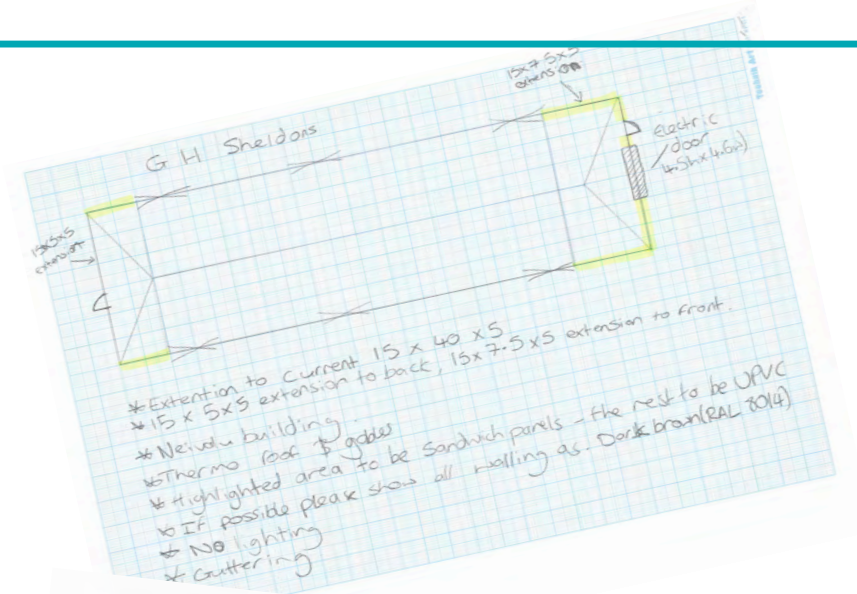 15x7.5x5
extension
G H Sheldons
Electric
door
15x5x5
extension
* Extention to current 15 x 40 x 5
* 15 x 5x5 extension to back, 15x7.5x5 extension to front.
* building
* Thermo roof & gables
* Highlighted area to be Sandwich panels - the rest to be UPVC
* If possible please show all walling as. Dark brown (RAL 8014)
* NO lighting
* Guttering